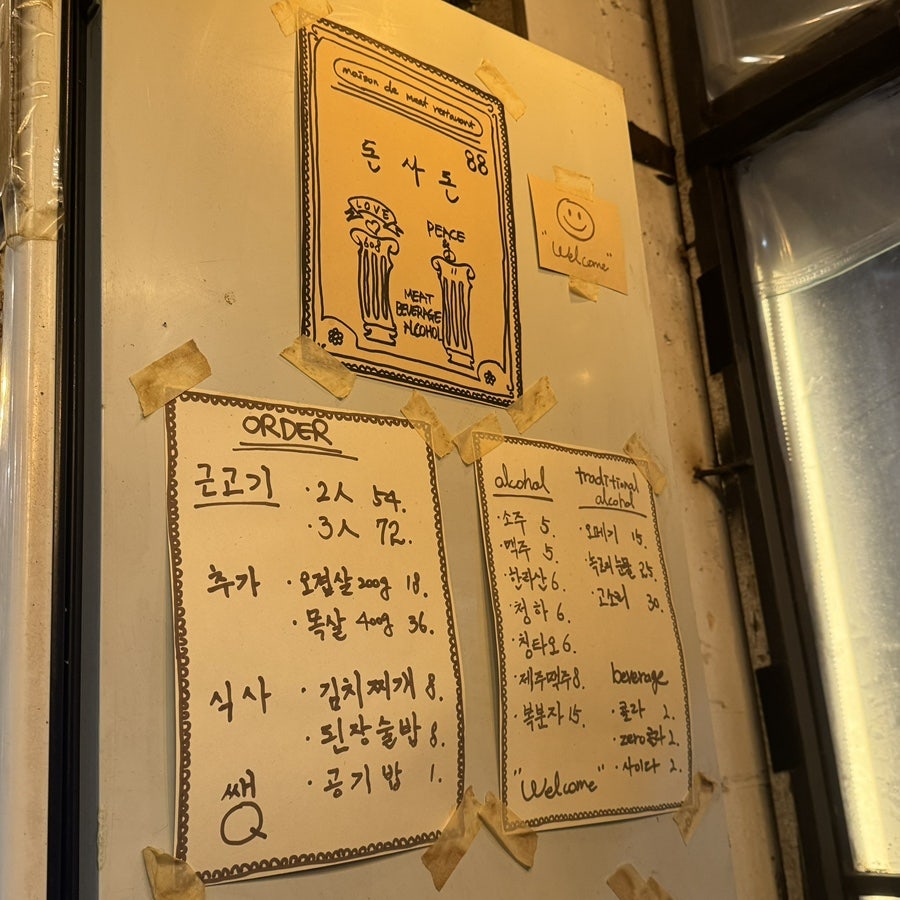 maison de meat restaurant
88
돈 사 돈
LOVE
PEACE
&
MEAT
BEVERAGE
ALCOHOL
"Welcome"
ORDER
근고기
·2人 54.
·3人 72.
추가
·오겹살 200g 18.
·목살 400g 36.
식사
·김치찌개 8.
·된장술밥 8.
·공기밥 1.
Q
alcohol
·소주 5.
·맥주 5.
·한라산 6.
·청하 6.
·칭타오 6.
·제주맥주 8.
·복분자 15.
traditional
alcohol
·오메기 15.
·녹고의눈물 25.
·고소리 30.
beverage
·콜라 2.
·zero콜라 2.
·사이다 2.
"Welcome"